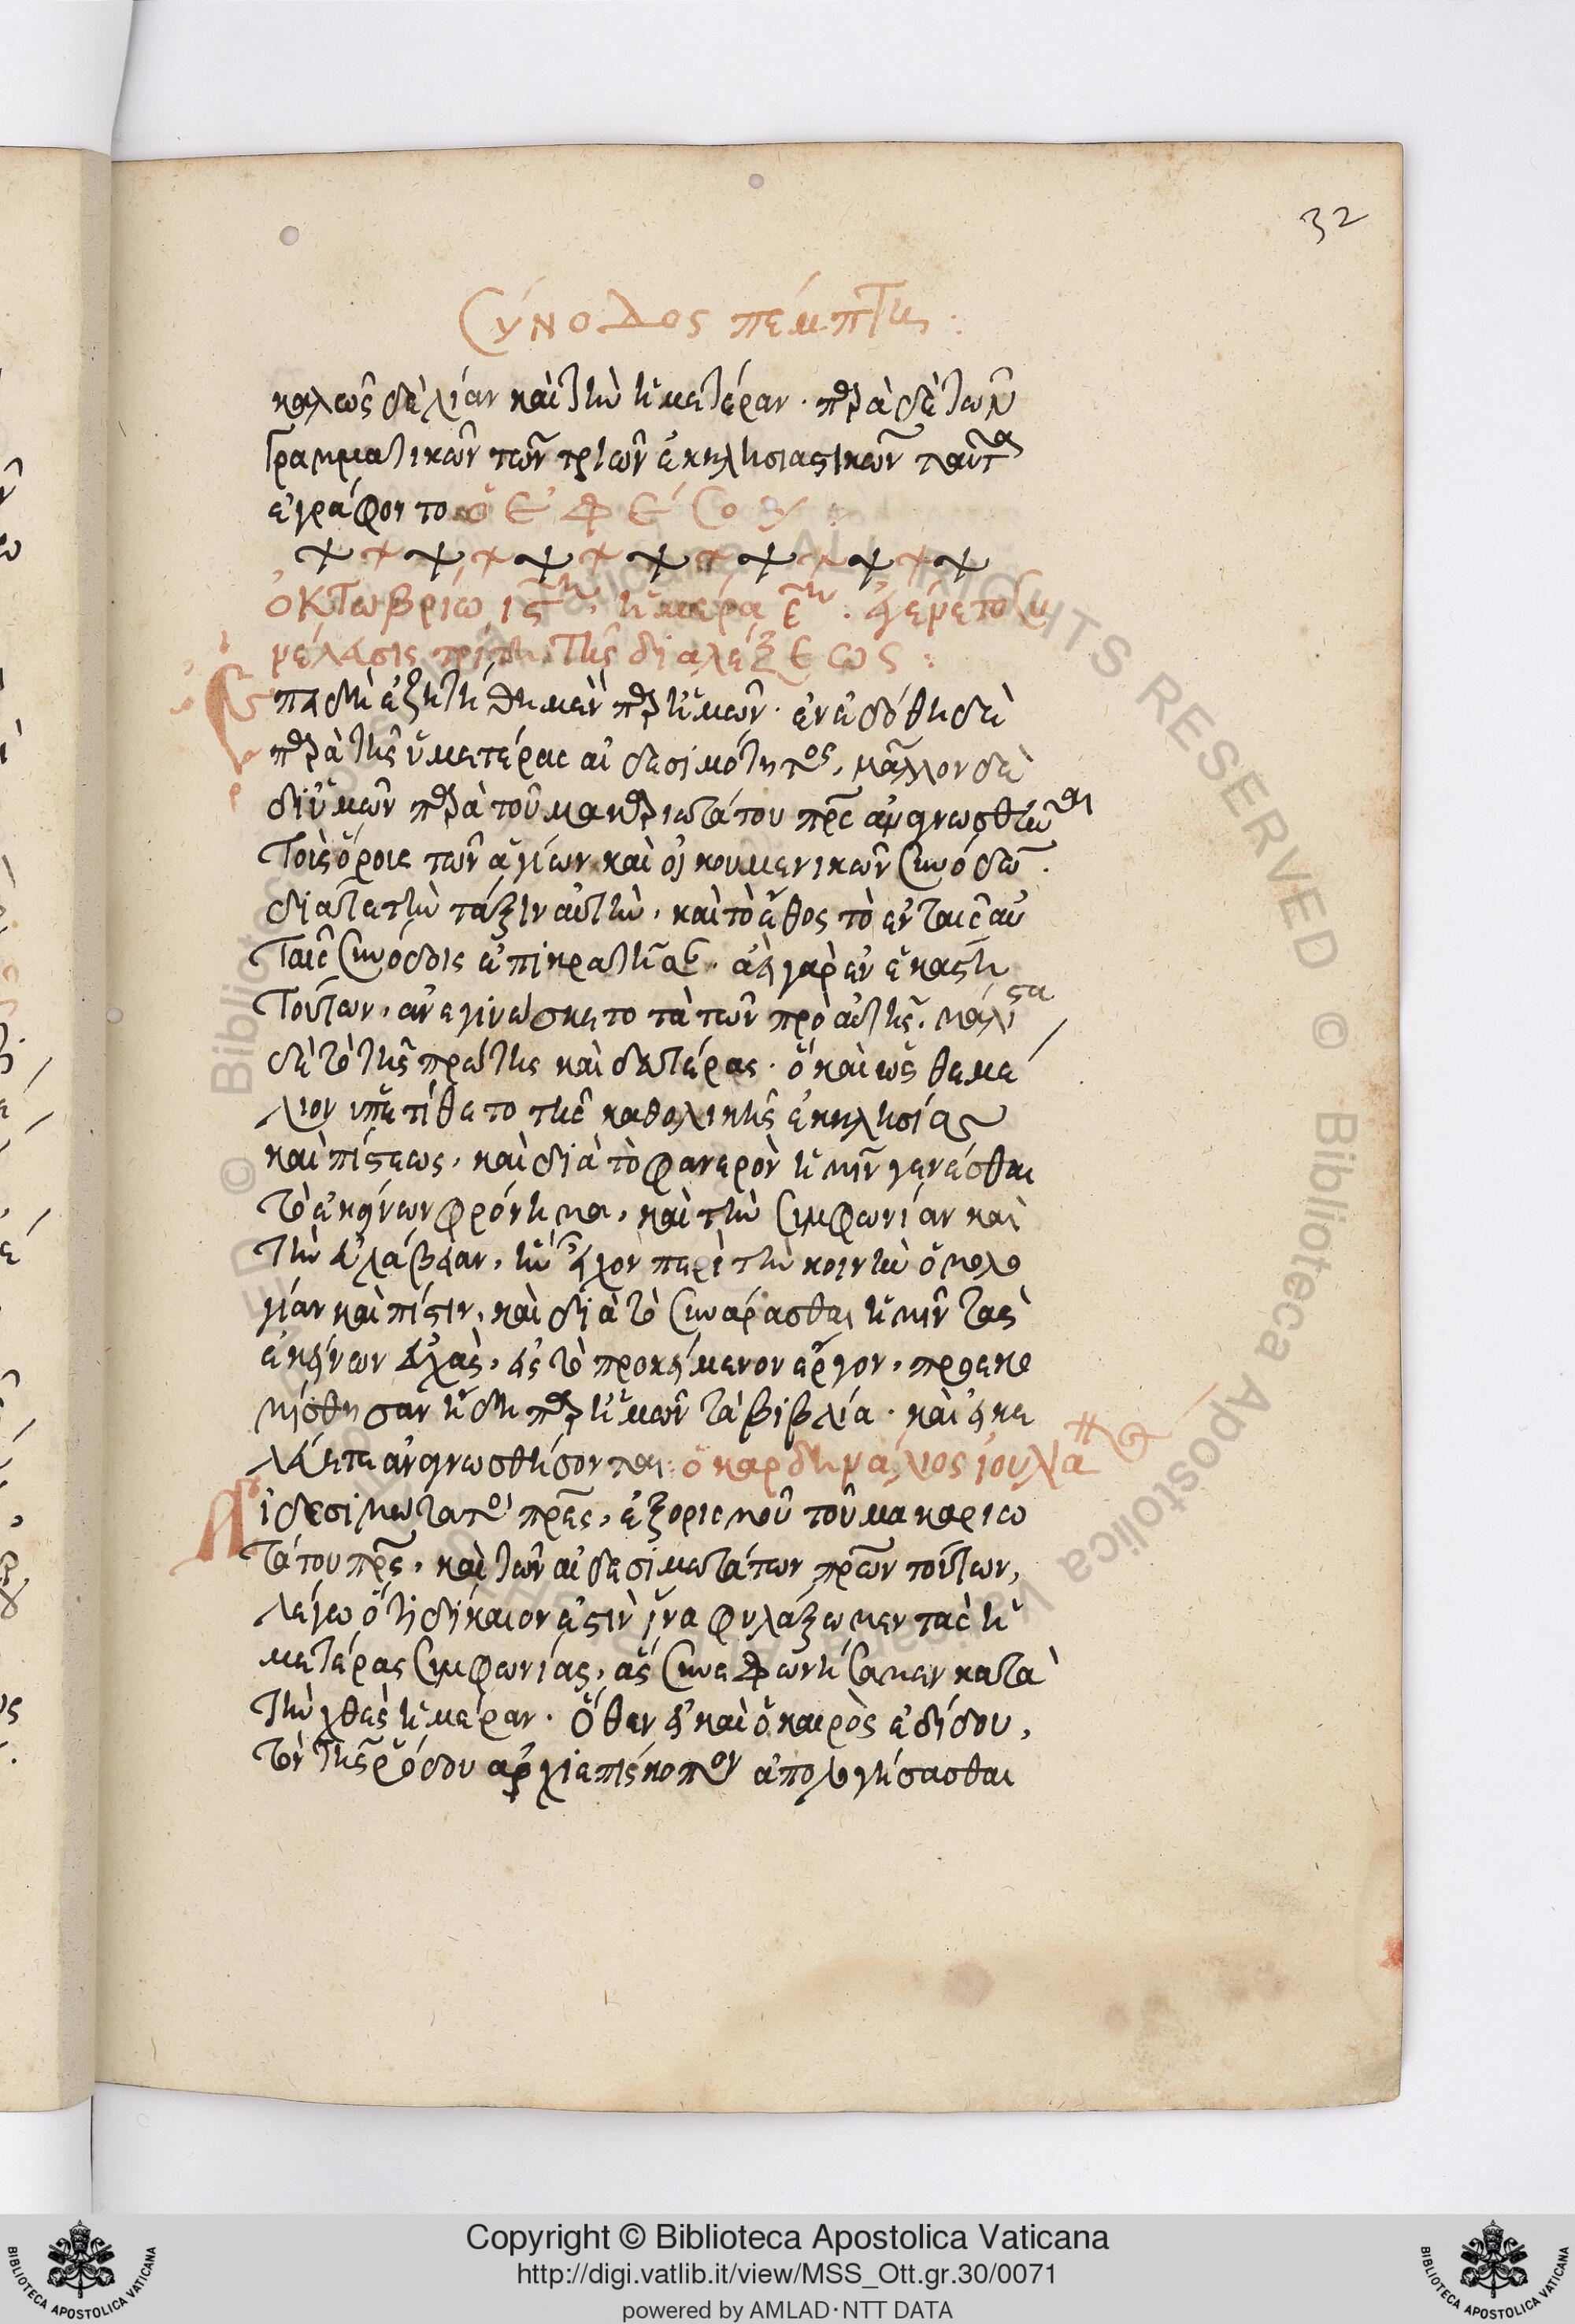 32
Σύνοδος πέμπτη:
καλῶς δὲ λίαν καὶ τὴν ἡμετέραν· παρὰ δὲ τῶν
γραμματικῶν τῶν τριῶν ἐκκλησιαστικῶν ταῦτα
ἐγράφοντο ὁ Ἐφέσου:
ὀκτωβρίω ιςη, ἡμέρα εη. ἐγένετο συ
νέλασις τρίτη τῆς διαλέξεως:
Ἐπειδὴ ἐζητήθη μὲν παρ ἡμῶν· ἐνεδόθη δὲ
παρὰ τῆς ὑμετέρας αἰδεσιμότητος, μᾶλλον δὲ
δι ὑμῶν παρὰ τοῦ μακαριωτάτου πρς ἀναγνωσθῆναι
τοὺς ὅρους τῶν ἁγίων καὶ οἰκουμενικῶν συνόδων.
διά τε τὴν τάξιν αὐτὴν, καὶ τὸ ἔθος τὸ ἐν ταῖς αὐ
ταῖς συνόδοις ἐπικρατῆσαν. ἀεὶ γὰρ ἐν ἑκάστη
τούτων, ἀνεγινώσκετο τὰ τῶν πρὸ αὐτῆς. μάλιστα
δὲ τὸ τῆς πρώτης καὶ δευτέρας· ὃ καὶ ὡς θεμέ
λιον ὑπετίθετο τῆς καθολικῆς ἐκκλησίας
καὶ πίστεως, καὶ διὰ τὸ φανερὸν ἡμῖν γενέσθαι
τὸ ἐκείνων φρόνημα, καὶ τὴν συμφωνίαν καὶ
τὴν εὐλάβειαν, ἣν εἶχον περὶ τὴν κοινὴν ὁμολο
γίαν καὶ πίστιν, καὶ διὰ τὸ συνάρασθαι ἡμῖν τὰς
ἐκείνων εὐχὰς, εἰς τὸ προκείμενον ἔργον, προεκο
μίσθησαν ἤδη παρ ἡμῶν τὰ βιβλία. καὶ εἰ κε
λεύετε ἀναγνωσθήσονται: ὁ καρδηνάλιος ἰουλια
Αἰδεσιμώτατοι πρες, ἐξ ὁρισμοῦ τοῦ μακαριω
τάτου πρς, καὶ τῶν αἰδεσιμωτάτων πρων τούτων,
λέγω ὅτι δίκαιον ἐστιν ἵνα φυλάξωμεν τὰς ἡ
μετέρας συμφωνίας, ἃς συνεφωνήσαμεν κατὰ
τὴν χθὲς ἡμέραν. ὅθεν εἰ καὶ ὁ καιρὸς ἐδίδου,
τὸν τῆς ῥόδου ἀρχιεπίσκοπον ἀπολογήσασθαι
Copyright © Biblioteca Apostolica Vaticana
http://digi.vatlib.it/view/MSS_Ott.gr.30/0071
powered by AMLAD·NTT DATA